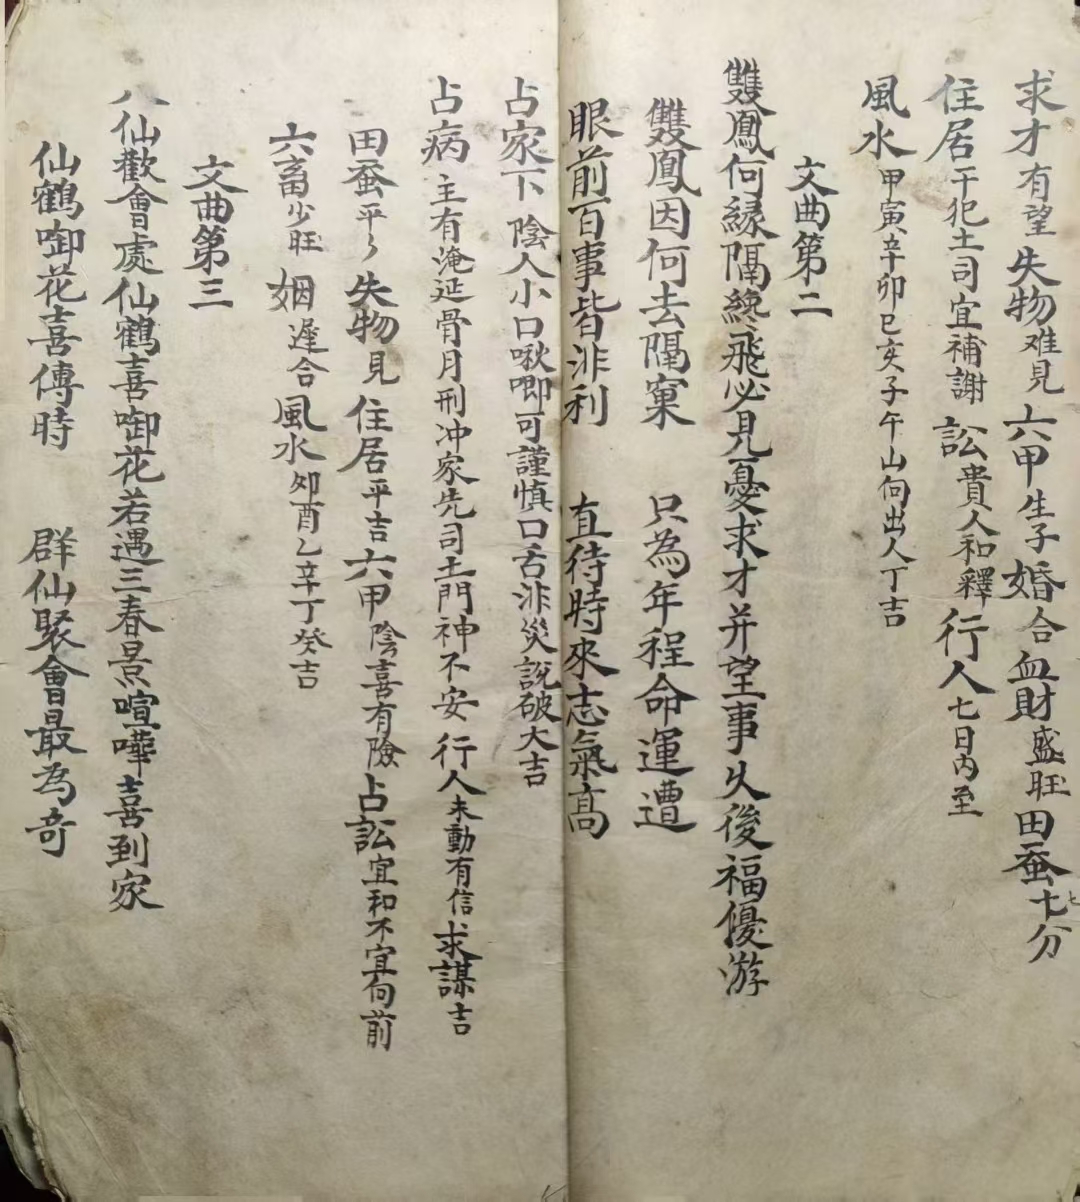 求才有望失物难見六甲生子婚合血財盛旺田蚕七分
住居干犯土司宜補謝訟貴人和釋行人七日内至
風水甲寅辛卯巳亥子午山向出人丁吉
文曲第二
雙鳳何縁隔終飛必見憂求才并望事乆後福優游
雙鳳因何去隔窠 只為年程命運遭
眼前百事皆非利 直待時來志氣高
占家下陰人小口啾唧可謹慎口舌非災說破大吉
占病主有淹延骨月刑冲家先司土門神不安行人未動有信求謀吉
田蚕平々失物見住居平吉六甲陰喜有險占訟宜和不宜向前
六畜少旺姻遲合風水卯酉乙辛丁癸吉
文曲第三
八仙歡會處仙鶴喜啣花若遇三春景喧嘩喜到家
仙鶴啣花喜傳時 群仙聚會最為奇